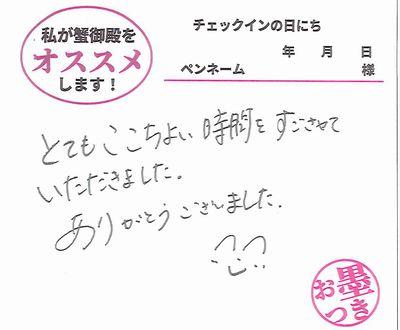 私が蟹御殿を
オススメ
します！
チェックインの日にち
年 月 日
ペンネーム 様
とてもここちよい時間をすごさせて
いただきました。
ありがとうございました。
お墨つき